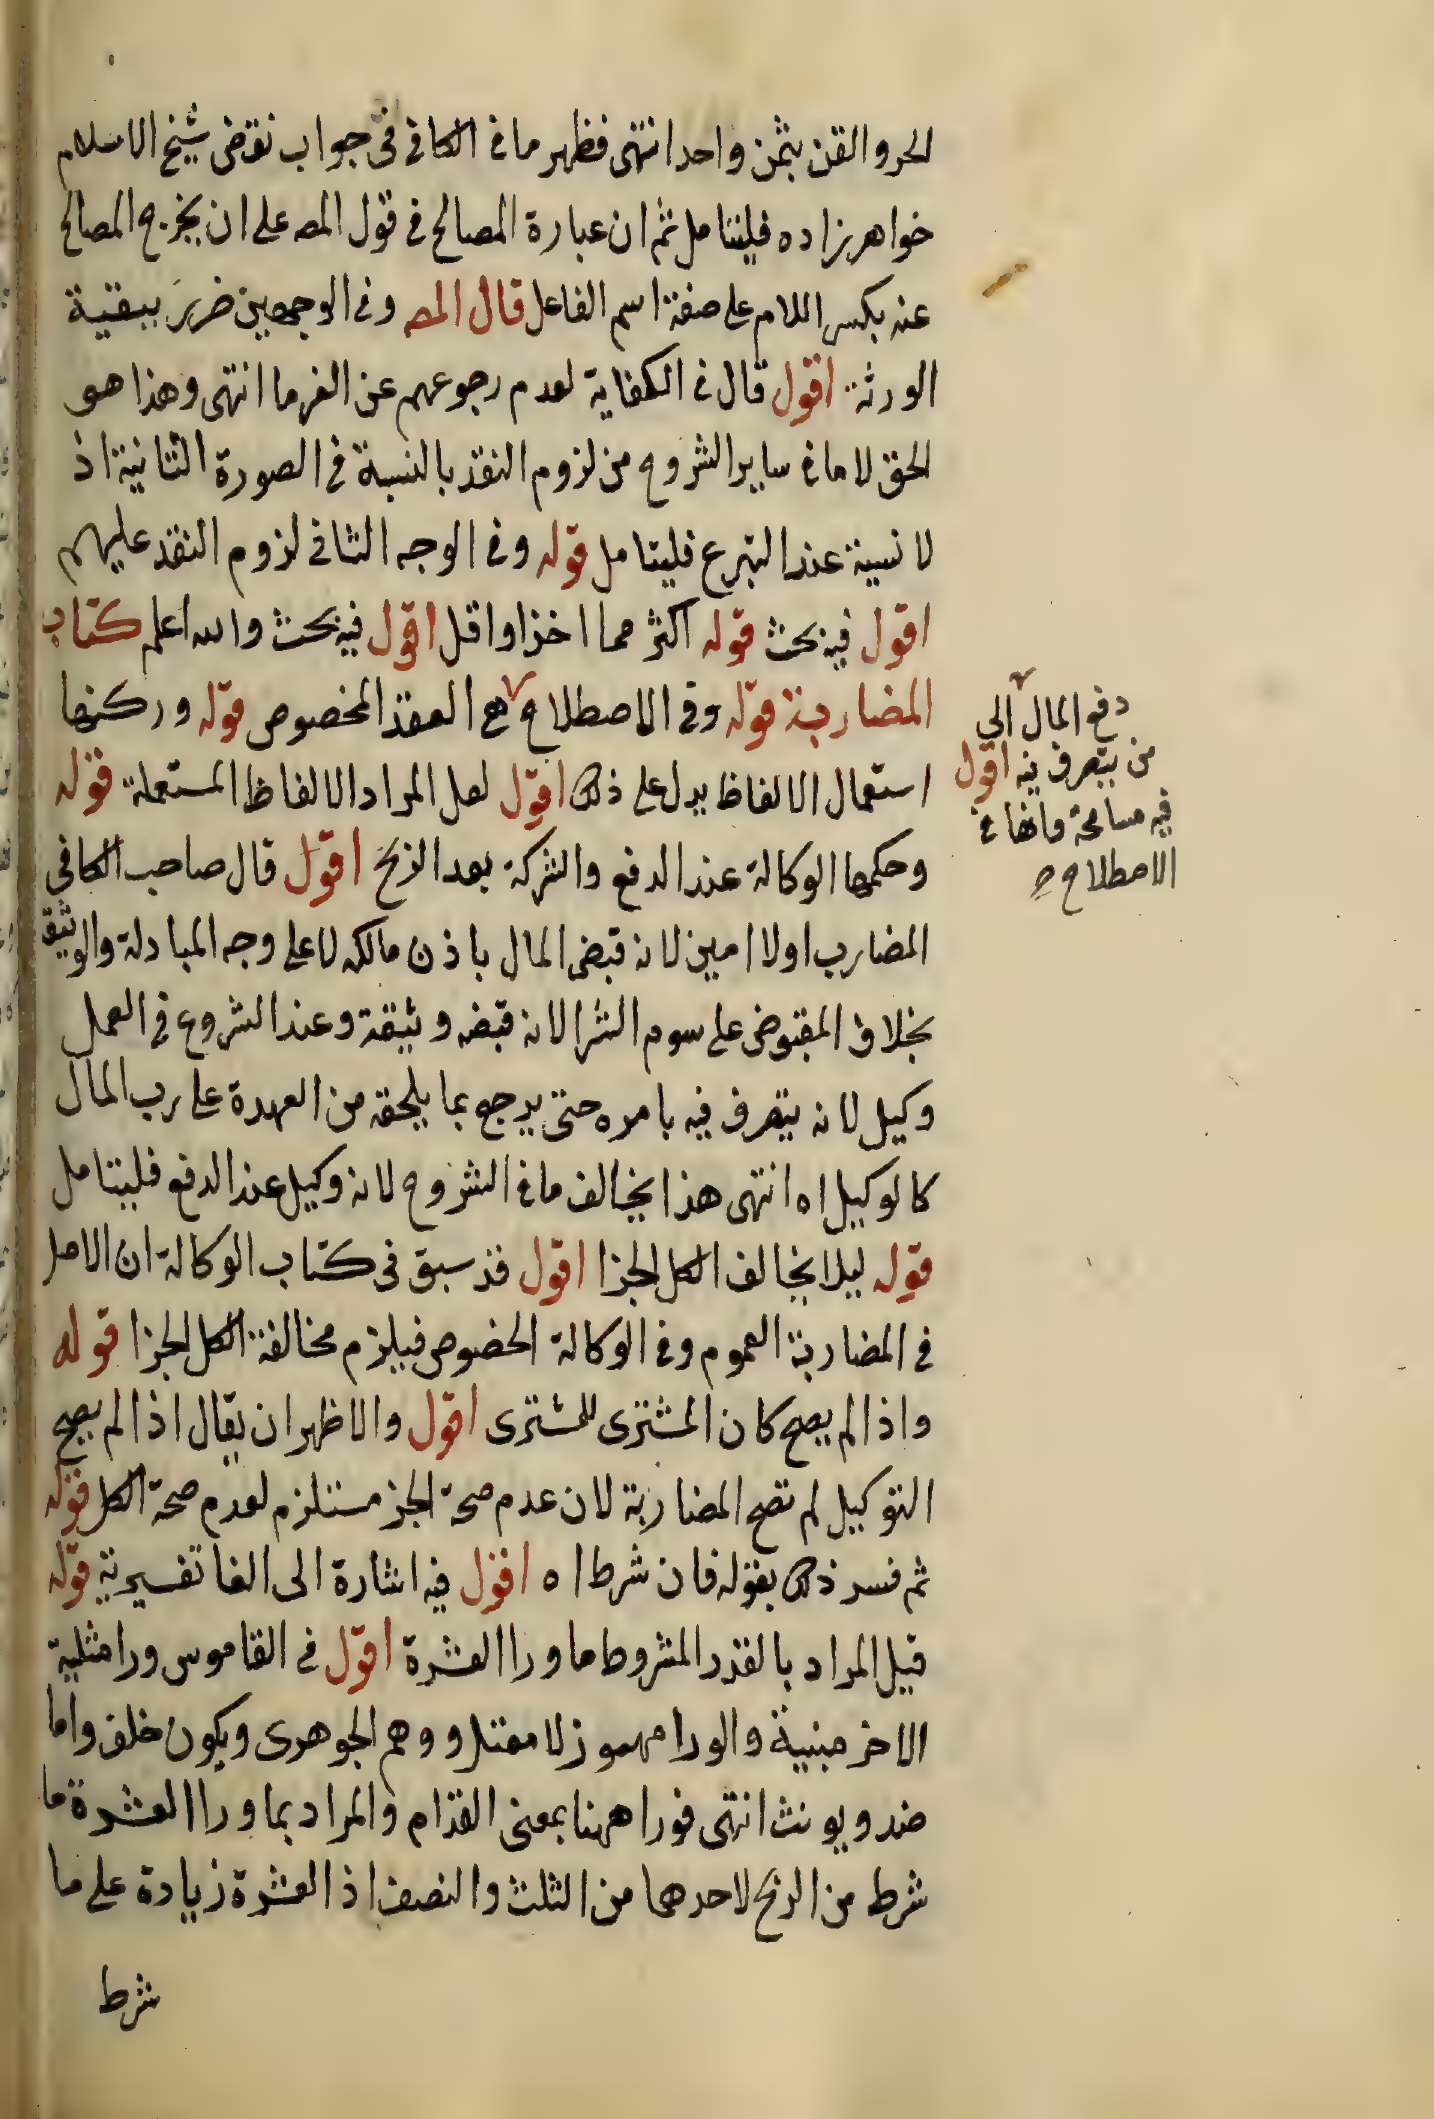 الحر والقن بثمن واحد انتهى فظهر ما في الكافي في جواب نقض شيخ الاسلام
خواهر زاده فليتامل ثم ان عبارة المصالح في قول المص على ان يخرج المصالح
عنه بكسر اللام على صفة اسم الفاعل قال المص وفي الوجهين ضرر ببقية
الورثة اقول قال في الكفاية لعدم رجوعهم عن الغرما انتهى وهذا هو
الحق لا ما في ساير الشروح من لزوم النقد بالنسبة في الصورة الثانية اذ
لا نسية عند التبرع فليتامل قوله وفي الوجه الثاني لزوم النقد عليهم
اقول فيه بحث قوله اكثر مما اخذ او اقل اقول فيه بحث والله اعلم كتاب
المضاربة قوله وفي الاصطلاح هي العقد المخصوص قوله وركنها
دفع المال الى
من يتصرف فيه اقول
فيه مسامحة وانها في
الاصطلاح صح
استعمال الالفاظ يدل على ذلك اقول لعل المراد الالفاظ المستعملة قوله
وحكمها الوكالة عند الدفع والشركة بعد الربح اقول قال صاحب الكافي
المضارب اولا امين لانه قبض المال باذن مالكه لا على وجه المبادلة والوثيقة
بخلاف المقبوض على سوم الشرا لانه قبضه وثيقة وعند الشروع في العمل
وكيل لانه يتصرف فيه بامره حتى يرجع بما يلحقه من العهدة على رب المال
كالوكيل اه انتهى هذا يخالف ما في الشروح لانه وكيل عند الدفع فليتامل
قوله ليلا يخالف الكل الجزا اقول قد سبق في كتاب الوكالة ان الاصل
في المضاربة العموم وفي الوكالة الخصوص فيلزم مخالفة الكل الجزا قوله
واذا لم يصح كان المشترى للمشترى اقول والاظهر ان يقال اذا لم يصح
التوكيل لم تصح المضاربة لان عدم صحة الجز مستلزم لعدم صحة الكل قوله
ثم فسر ذلك بقوله فان شرط اه اقول فيه اشارة الى الفا تفسيرية قوله
قيل المراد بالقدر المشروط ما ورا العشرة اقول في القاموس ورا مثلثة
الاخر مبنية والورا مهموز لا معتل ووهم الجوهرى ويكون خلف واما
ضد ويونث انتهى فورا ههنا بمعنى القدام والمراد بما ورا العشرة ما
شرط من الربح لاحدهما من الثلث والنصف اذ العشرة زيادة على ما
شرط